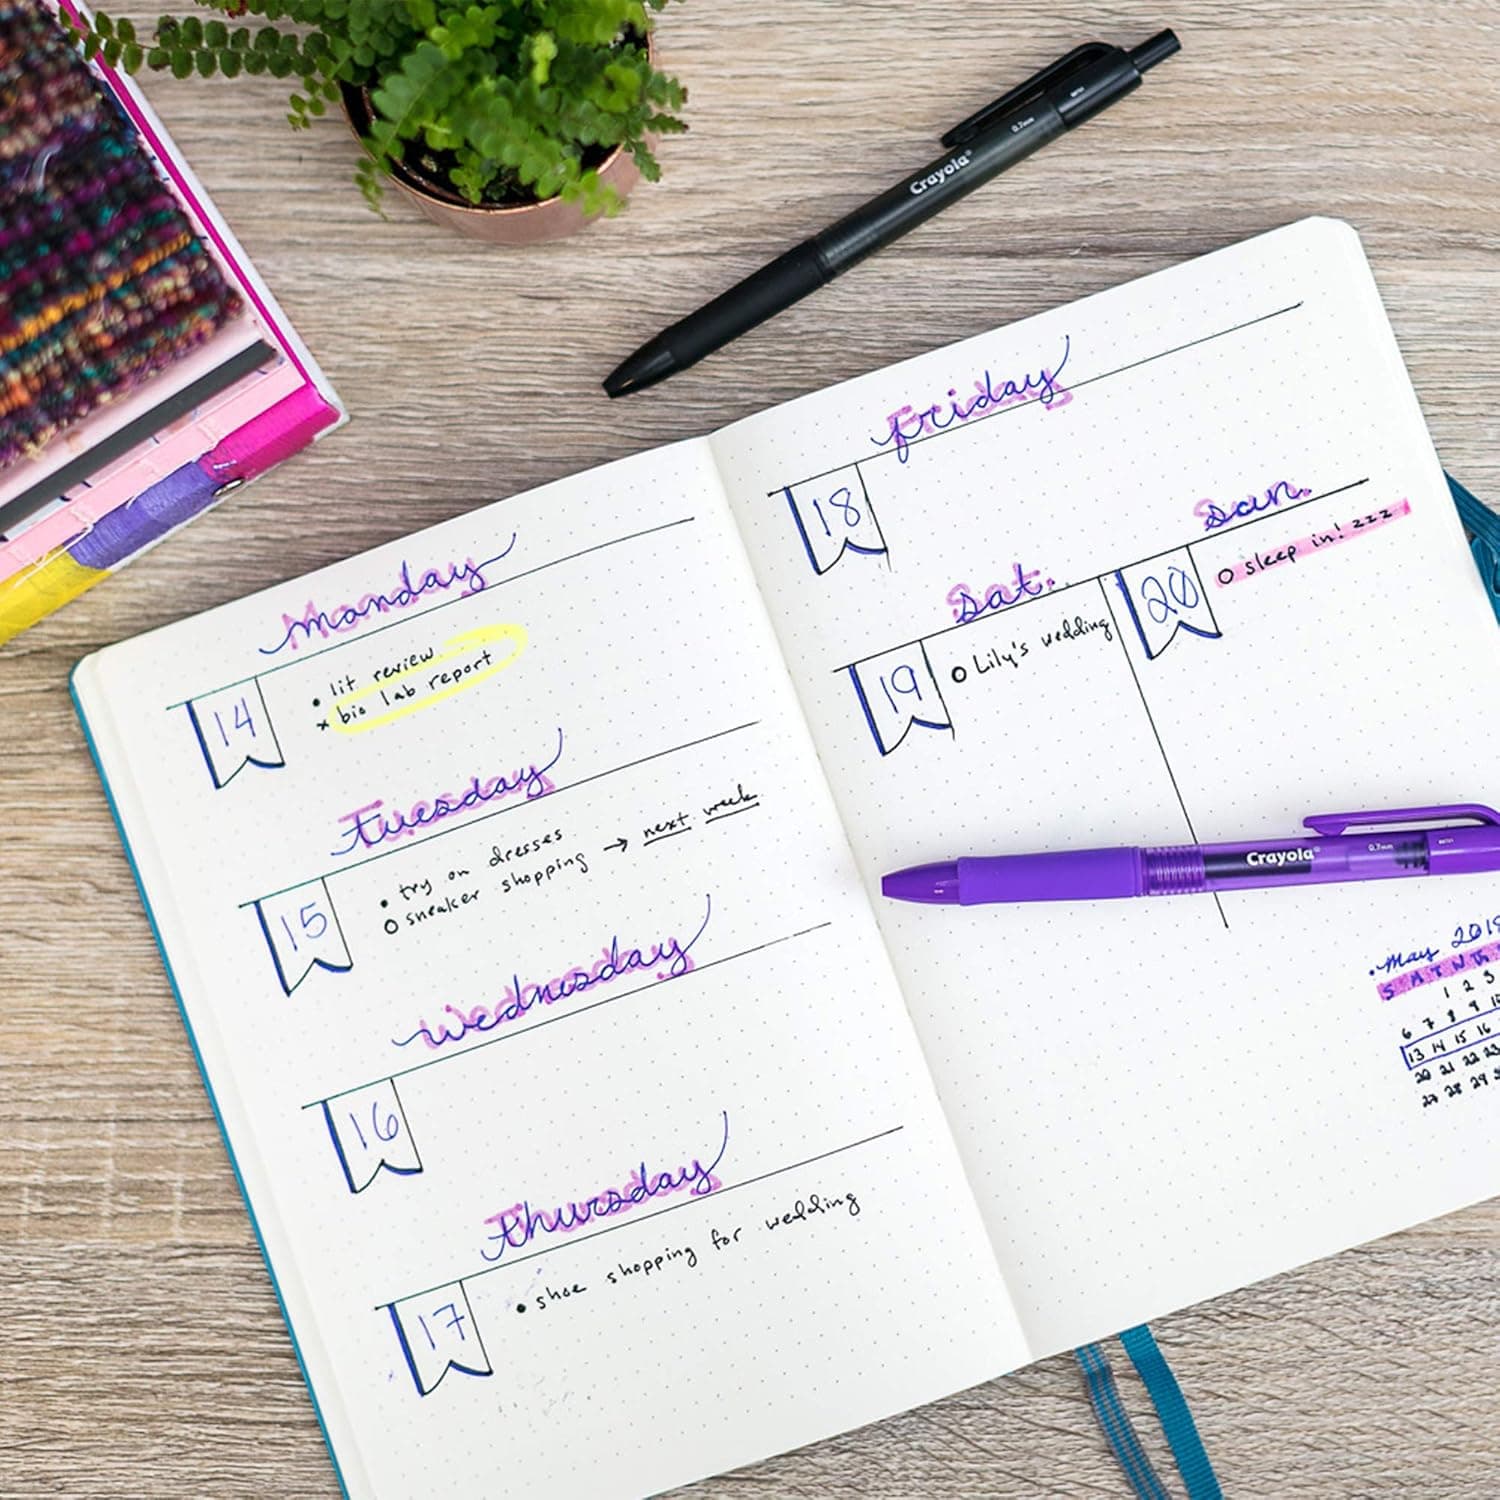 Crayola
0.7mm
Monday
14
• lit review
x bio lab report
Tuesday
15
• try on dresses
O sneaker shopping → next week
Wednesday
16
Thursday
17
• shoe shopping for wedding
Friday
18
Sat.
19
O Lily's wedding
Sun.
20
O sleep in! zzz
Crayola
0.7mm
• May 201
S M T W Th
1 2 3
6 7 8 9 10
13 14 15 16
20 21 22 23
27 28 29